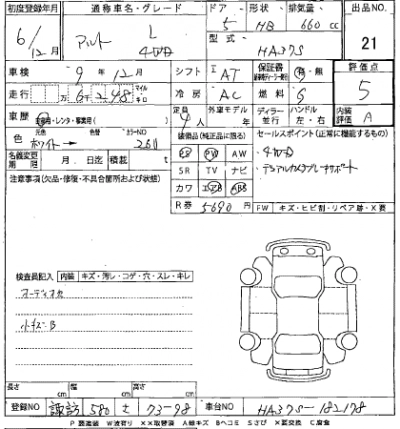 初度登録年月 通称車名・グレード ドア 形状 排気量 出品NO.
6/12月 アルト L 4WD 5 HB 660 cc 21
型式 HA37S
車検 9年12月 シフト I AT 保証書 有・無 評価点 5
走行 万 6千 248 マイル キロ 冷房 AC 燃料 G 内装評価 A
車歴 自家用・レンタ・事業用 定員 4人 外車モデル ディーラー 並行 ハンドル 左・右
色 元色 ホワイト→ 色替 カラーNO 26U
装備品(純正品に限る) セールスポイント(正常に機能するもの)
PS PW AW ・4WD
名義変更期限 月 日迄 積載 t SR TV ナビ ・デュアルカメラブレーキサポート
注意事項(欠品・修復・不具合箇所および状態) カワ エアB ABS
R券 5690円 FW キズ・ヒビ割・リペア跡・X要
検査員記入 内装 キズ・汚レ・コゲ・穴・スレ・キレ
オーディオカ
小キズ・B
長さ cm 幅 cm 高さ cm
登録NO 諏訪 580 せ 73-98 車台NO HA37S-182178
P 要塗装 W波有り XX取替済 A線キズ Bヘコミ Sさび X要交換 C腐食